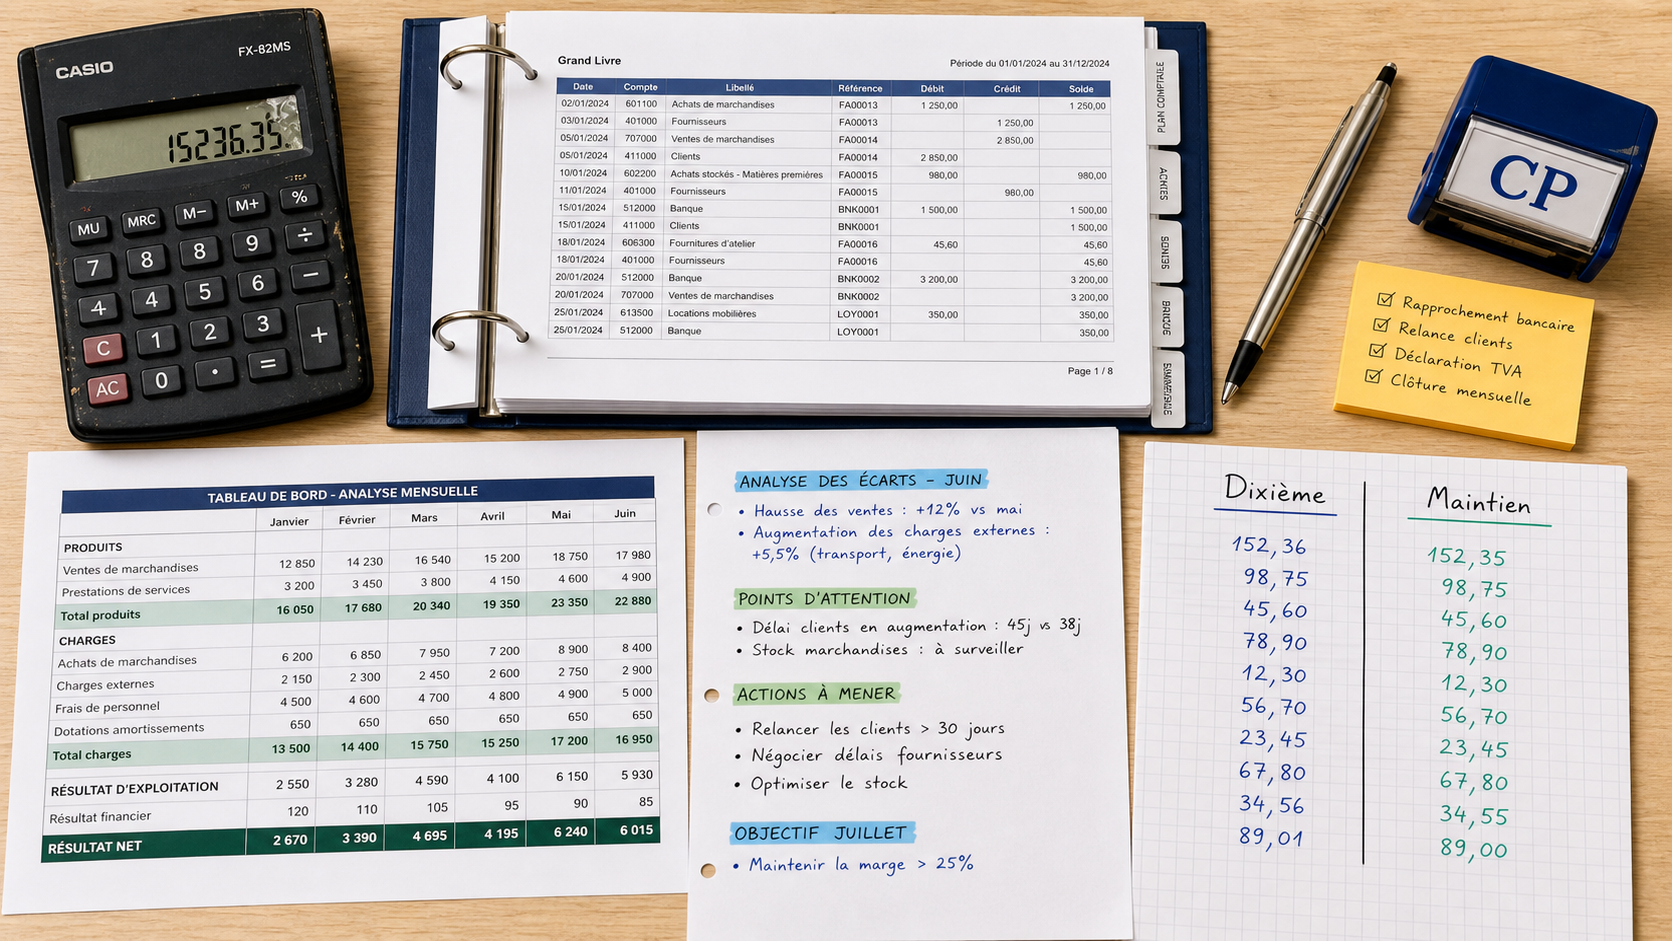 CASIO
FX-82MS
15236.35
MU MRC M− M+ %
7 8 8 9 ÷
4 4 5 6 −
C 1 2 3 +
AC 0 · =
Grand Livre
Période du 01/01/2024 au 31/12/2024
Date Compte Libellé Référence Débit Crédit Solde
02/01/2024 601100 Achats de marchandises FA00013 1 250,00 1 250,00
03/01/2024 401000 Fournisseurs FA00013 1 250,00
05/01/2024 707000 Ventes de marchandises FA00014 2 850,00
05/01/2024 411000 Clients FA00014 2 850,00
10/01/2024 602200 Achats stockés - Matières premières FA00015 980,00 980,00
11/01/2024 401000 Fournisseurs FA00015 980,00
15/01/2024 512000 Banque BNK0001 1 500,00 1 500,00
15/01/2024 411000 Clients BNK0001 1 500,00
18/01/2024 606300 Fournitures d'atelier FA00016 45,60 45,60
18/01/2024 401000 Fournisseurs FA00016 45,60
20/01/2024 512000 Banque BNK0002 3 200,00 3 200,00
20/01/2024 707000 Ventes de marchandises BNK0002 3 200,00
25/01/2024 613500 Locations mobilières LOY0001 350,00 350,00
25/01/2024 512000 Banque LOY0001 350,00
Page 1 / 8
PLAN COMPTABLE
CP
☑ Rapprochement bancaire
☑ Relance clients
☑ Déclaration TVA
☑ Clôture mensuelle
TABLEAU DE BORD - ANALYSE MENSUELLE
Janvier Février Mars Avril Mai Juin
PRODUITS
Ventes de marchandises 12 850 14 230 16 540 15 200 18 750 17 980
Prestations de services 3 200 3 450 3 800 4 150 4 600 4 900
Total produits 16 050 17 680 20 340 19 350 23 350 22 880
CHARGES
Achats de marchandises 6 200 6 850 7 950 7 200 8 900 8 400
Charges externes 2 150 2 300 2 450 2 600 2 750 2 900
Frais de personnel 4 500 4 600 4 700 4 800 4 900 5 000
Dotations amortissements 650 650 650 650 650 650
Total charges 13 500 14 400 15 750 15 250 17 200 16 950
RÉSULTAT D'EXPLOITATION 2 550 3 280 4 590 4 100 6 150 5 930
Résultat financier 120 110 105 95 90 85
RÉSULTAT NET 2 670 3 390 4 695 4 195 6 240 6 015
ANALYSE DES ÉCARTS – JUIN
• Hausse des ventes : +12% vs mai
• Augmentation des charges externes :
+5,5% (transport, énergie)
POINTS D'ATTENTION
• Délai clients en augmentation : 45j vs 38j
• Stock marchandises : à surveiller
ACTIONS À MENER
• Relancer les clients > 30 jours
• Négocier délais fournisseurs
• Optimiser le stock
OBJECTIF JUILLET
• Maintenir la marge > 25%
Dixième Maintien
152,36 152,35
98,75 98,75
45,60 45,60
78,90 78,90
12,30 12,30
56,70 56,70
23,45 23,45
67,80 67,80
34,56 34,55
89,01 89,00